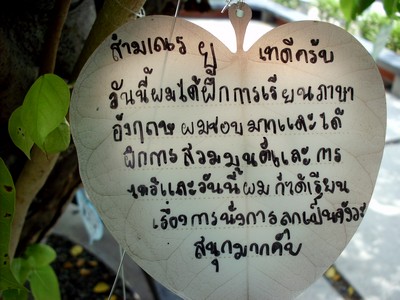 สามเณร ยู เทดีครับ
วันนี้ผมได้ฝึกการเรียนภาษา
อังกฤษ ผมชอบมากและได้
ฝึกการสวมมนต์และการ
และวันนี้ ผม ก็ได้เรียน
เรื่องการนั่งการลุกเป็นจังวะ
สนุกมากค๊บ